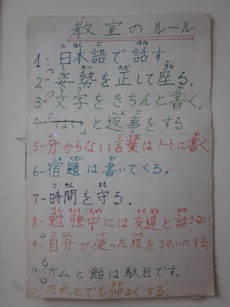 教室のルール
1- 日本語で話す
2- 姿勢を正して座る。
3- 文字をきちんと書く。
7- 「はい」と返事をする
5- 分からない言葉はノートに書く。
6- 宿題は書いてくる。
7- 時間を守る.
8- 勉強中には友達と話さない
9- 自分が使った机をきれいにする.
10- ガムと飴は駄目です.
11- だれとでも仲よくする.